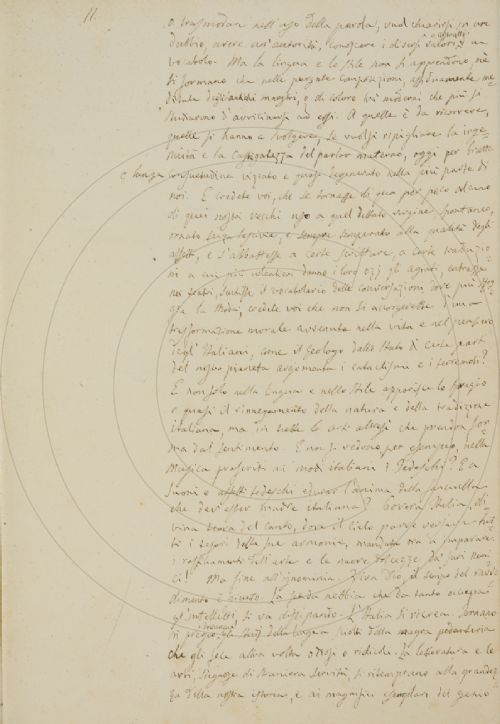 11.
o trasmodare nell'uso della parola, vuol chiarirsi in ove
dubbio, avere un'autorità, conoscere i diversi valori d'un
vocabolo. Ma la lingua e lo stile non si apprendono, nè
si formano che nelle pregiate composizioni, assiduamente me-
ditate degli antichi maestri, o di coloro tra' moderni che più si
studiarono d'avvicinarsi ad essi. A quelle è da ricorrere,
quelle si hanno a svolgere, se vuolsi ripigliare la inge-
nuità e la castigatezza del parlar materno, oggi per
e lunga consuetudine viziato e quasi degenerato nella più parte di
noi. E credete voi, che se tornasse di qua per poco alcuno
di quei nostri vecchi uso a quel dettato vergine spontaneo,
ornato senza lascivie, e sempre temperato alla qualità degli
affetti, e s'abbattesse a certe scritture, a certe traduzio-
ni a cui più volentieri danno i loro ozj gli agiati, entrasse
nei teatri, sentisse il vocabolario delle conversazioni dove più
la moda, credete voi che non si accorgerebbe d'una
trasformazione morale avvenuta nella vita e nel pensiero
degl'Italiani, come il geologo dallo stato di certe parti
del nostro pianeta argomenta i cataclismi e i terremoti?
E non solo nella lingua e nello stile apparisce lo spregio
e quasi il rinnegamento della natura e della tradizione
italiana, ma in tutte le arti altresì che prendon for-
ma dal sentimento. E non si vedono per esempio, nella
Musica preferiti ai modi italiani i Tedeschi? E a
suoni e affetti tedeschi educar l'anima della fanciulla
che dev'esser madre italiana? Povera Italia, di-
vina terra del canto, dove il Cielo parve versasse tut-
ti i tesori delle sue armonie, mandata ora a imparare
i raffinamenti dell'arte e le nuove dai suoi nemi-
ci! Ma fine all'ignominia. Viva Dio, il tempo del
dimento è giunto. La nebbia che da tanto occupa
gl'intelletti, si va dissipando. L'Italia si ricrea. Tornano
in pregio gli studj della lingua fuori della magra pedanteria
che gli fece altra volta odiosi e ridicoli. La letteratura e le
arti, sdegnose di straniera servitù, si ritemprano alla grandez-
za della nostra istoria, e ai magnifici esemplari del genio